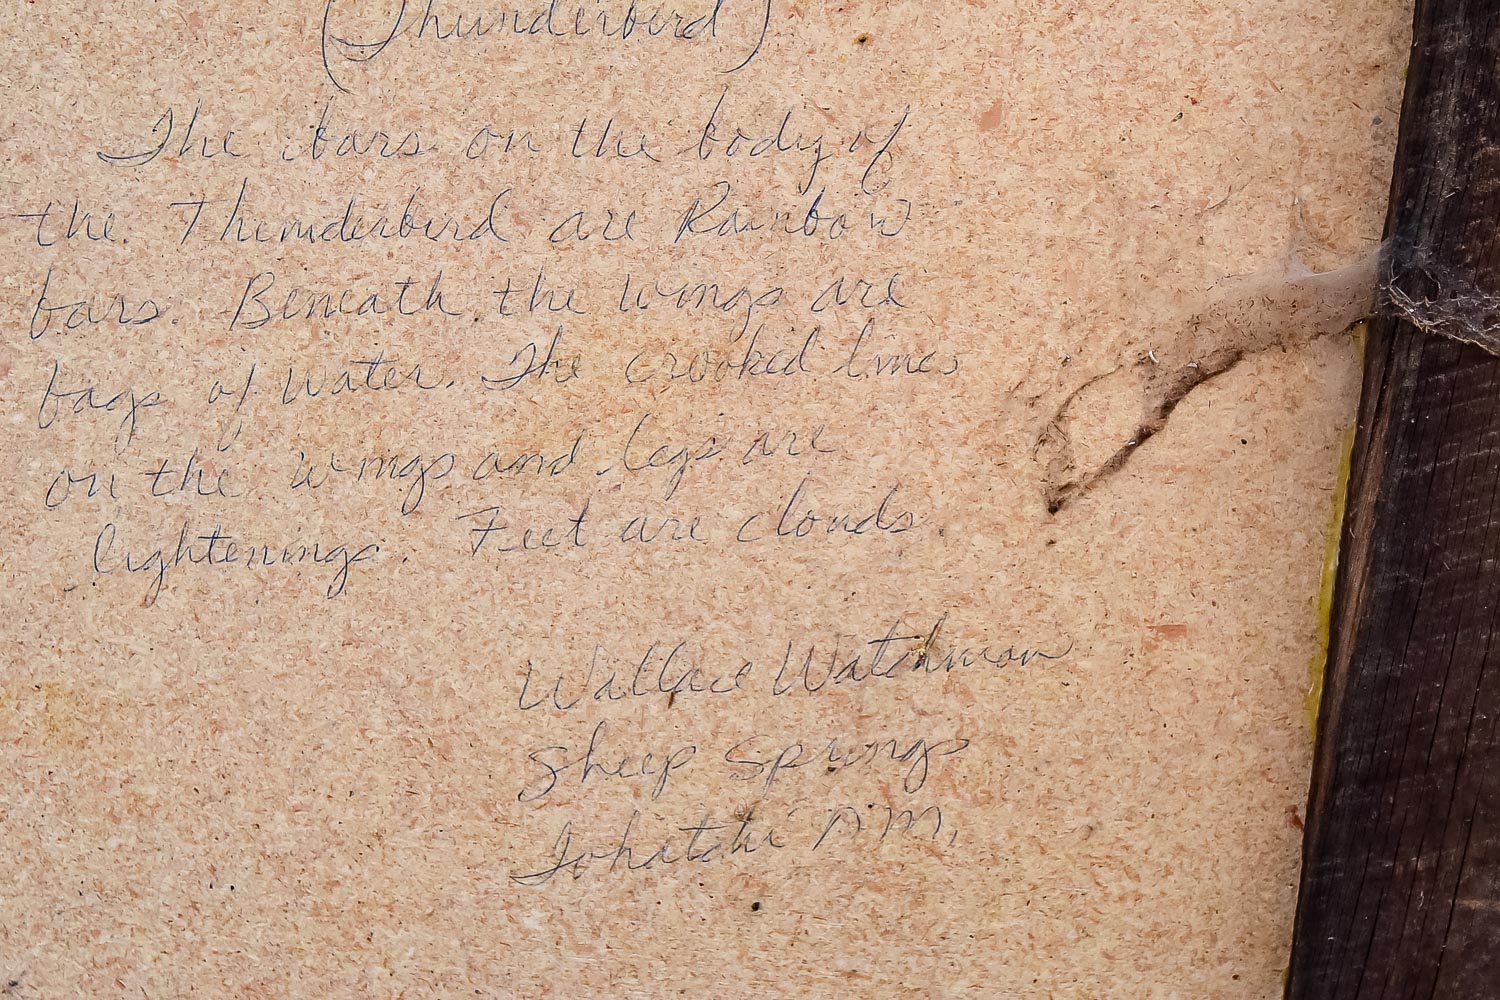 (Thunderbird)
The bars on the body of
the Thunderbird are Rainbow
bars. Beneath the wings are
bags of water. The crooked lines
on the wings and legs are
lightenings. Feet are clouds.
Wallace Watchman
Sheep Springs
Tohatchi N M,